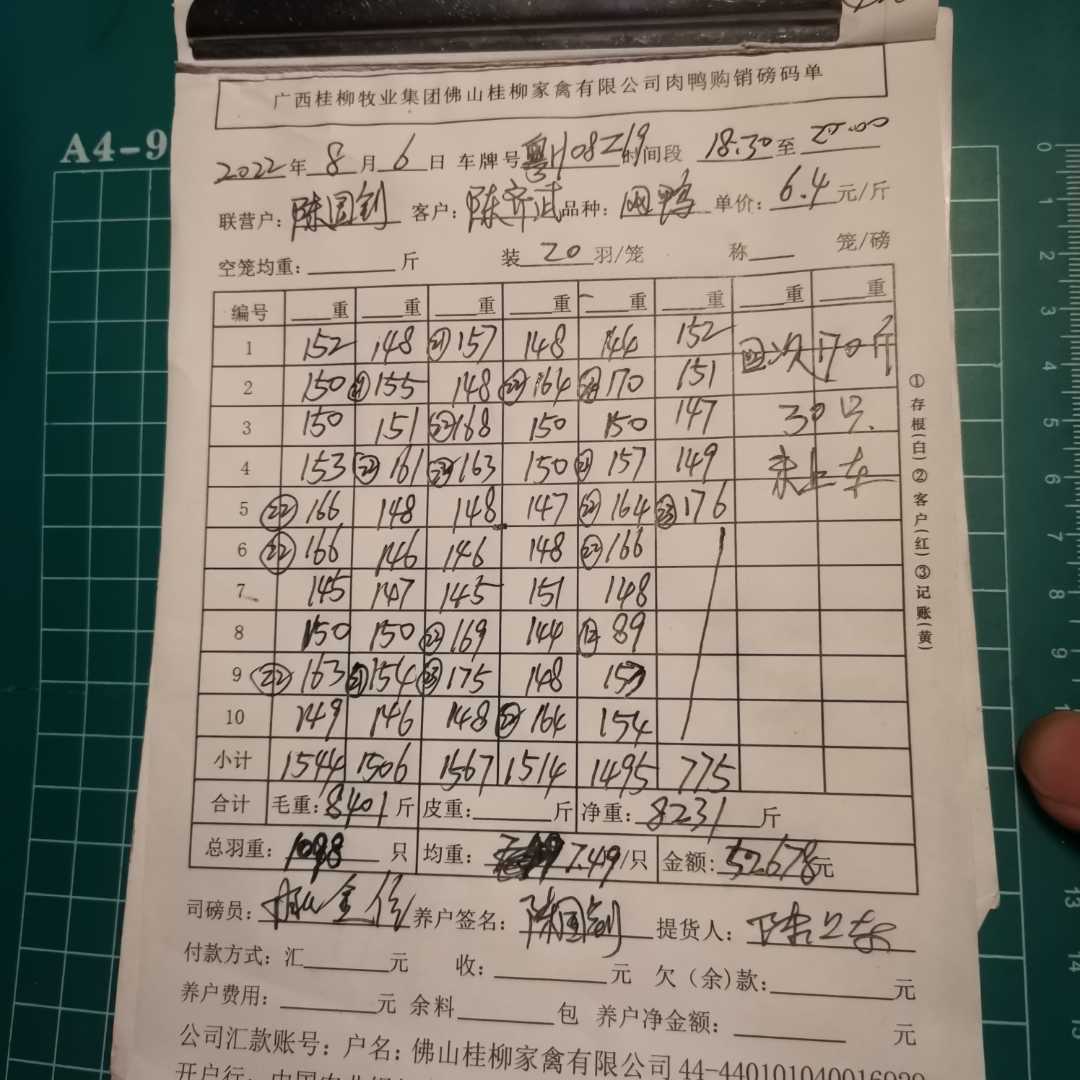 广西桂柳牧业集团佛山桂柳家禽有限公司肉鸭购销磅码单
2022年 8 月 6 日 车牌号 粤H08Z69 时间段 18:30 至
联营户: 客户: 品种: 鸭 单价: 6.4 元/斤
空笼均重: 斤 装 20 羽/笼 称 笼/磅
编号 重 重 重 重 重 重 重 重
1 152 148 (21)157 148 144 152 四次170斤
2 150 (21)155 148 (22)164 170 151
3 150 151 (22)168 150 150 147 30只
4 153 (22)161 163 150 (21)157 149 未上车
5 (22)166 148 148 147 (22)164 (23)176
6 (22)166 146 146 148 (22)166
7 145 147 145 151 148
8 150 150 (22)169 144 (12)89
9 (22)163 (21)154 (23)175 148
10 149 146 148 (22)164 154
小计 1544 1506 1567 1514 1495 775
合计 毛重: 8401 斤 皮重: 斤 净重: 8231 斤
总羽重: 1098 只 均重: 7.49/只 金额: 52678元
司磅员: 养户签名: 提货人:
付款方式: 汇 元 收: 元 欠(余)款: 元
养户费用: 元 余料 包 养户净金额: 元
公司汇款账号: 户名: 佛山桂柳家禽有限公司
开户行:
①存根(白)②客户(红)③记账(黄)
A4-9
0
1
2
3
4
5
6
7
8
9
13
14